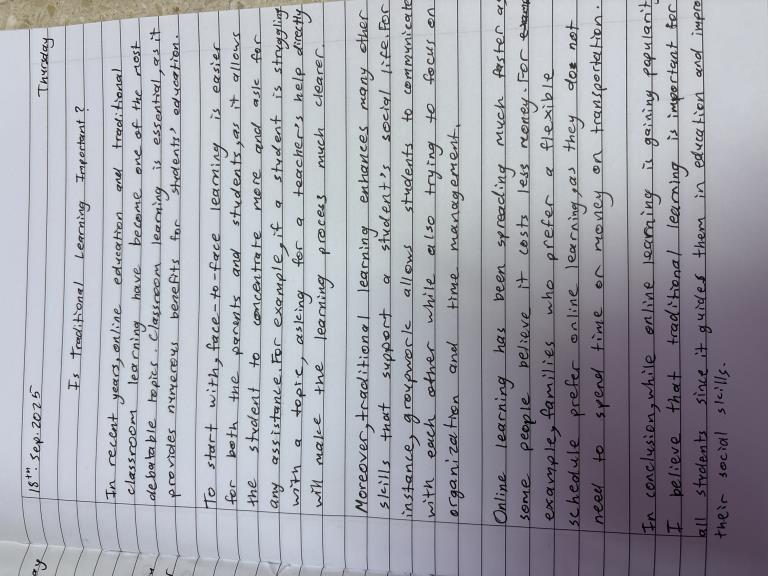 18th. Sep. 2025 Thursday
Is Traditional Learning Important?
In recent years, online education and traditional
classroom learning have become one of the most
debatable topic. Classroom learning is essential, as it
provides numerous benefits for students' education.
To start with, face-to-face learning is easier
for both the parents and students, as it allows
the student to concentrate more and ask for
any assistance. For example, if a student is struggling
with a topic, asking for a teacher's help directly
will make the learning process much clearer.
Moreover, traditional learning enhances many other
skills that support a student's social life. For
instance, groupwork allows students to communicate
with each other while also trying to focus on
organization and time management.
Online learning has been spreading much faster as
some people believe it costs less money. For examp
example, families who prefer a flexible
schedule prefer online learning, as they do not
need to spend time or money on transportation.
In conclusion, while online learning is gaining popularit
I believe that traditional learning is important for
all students since it guides them in education and impro
their social skills.
ay